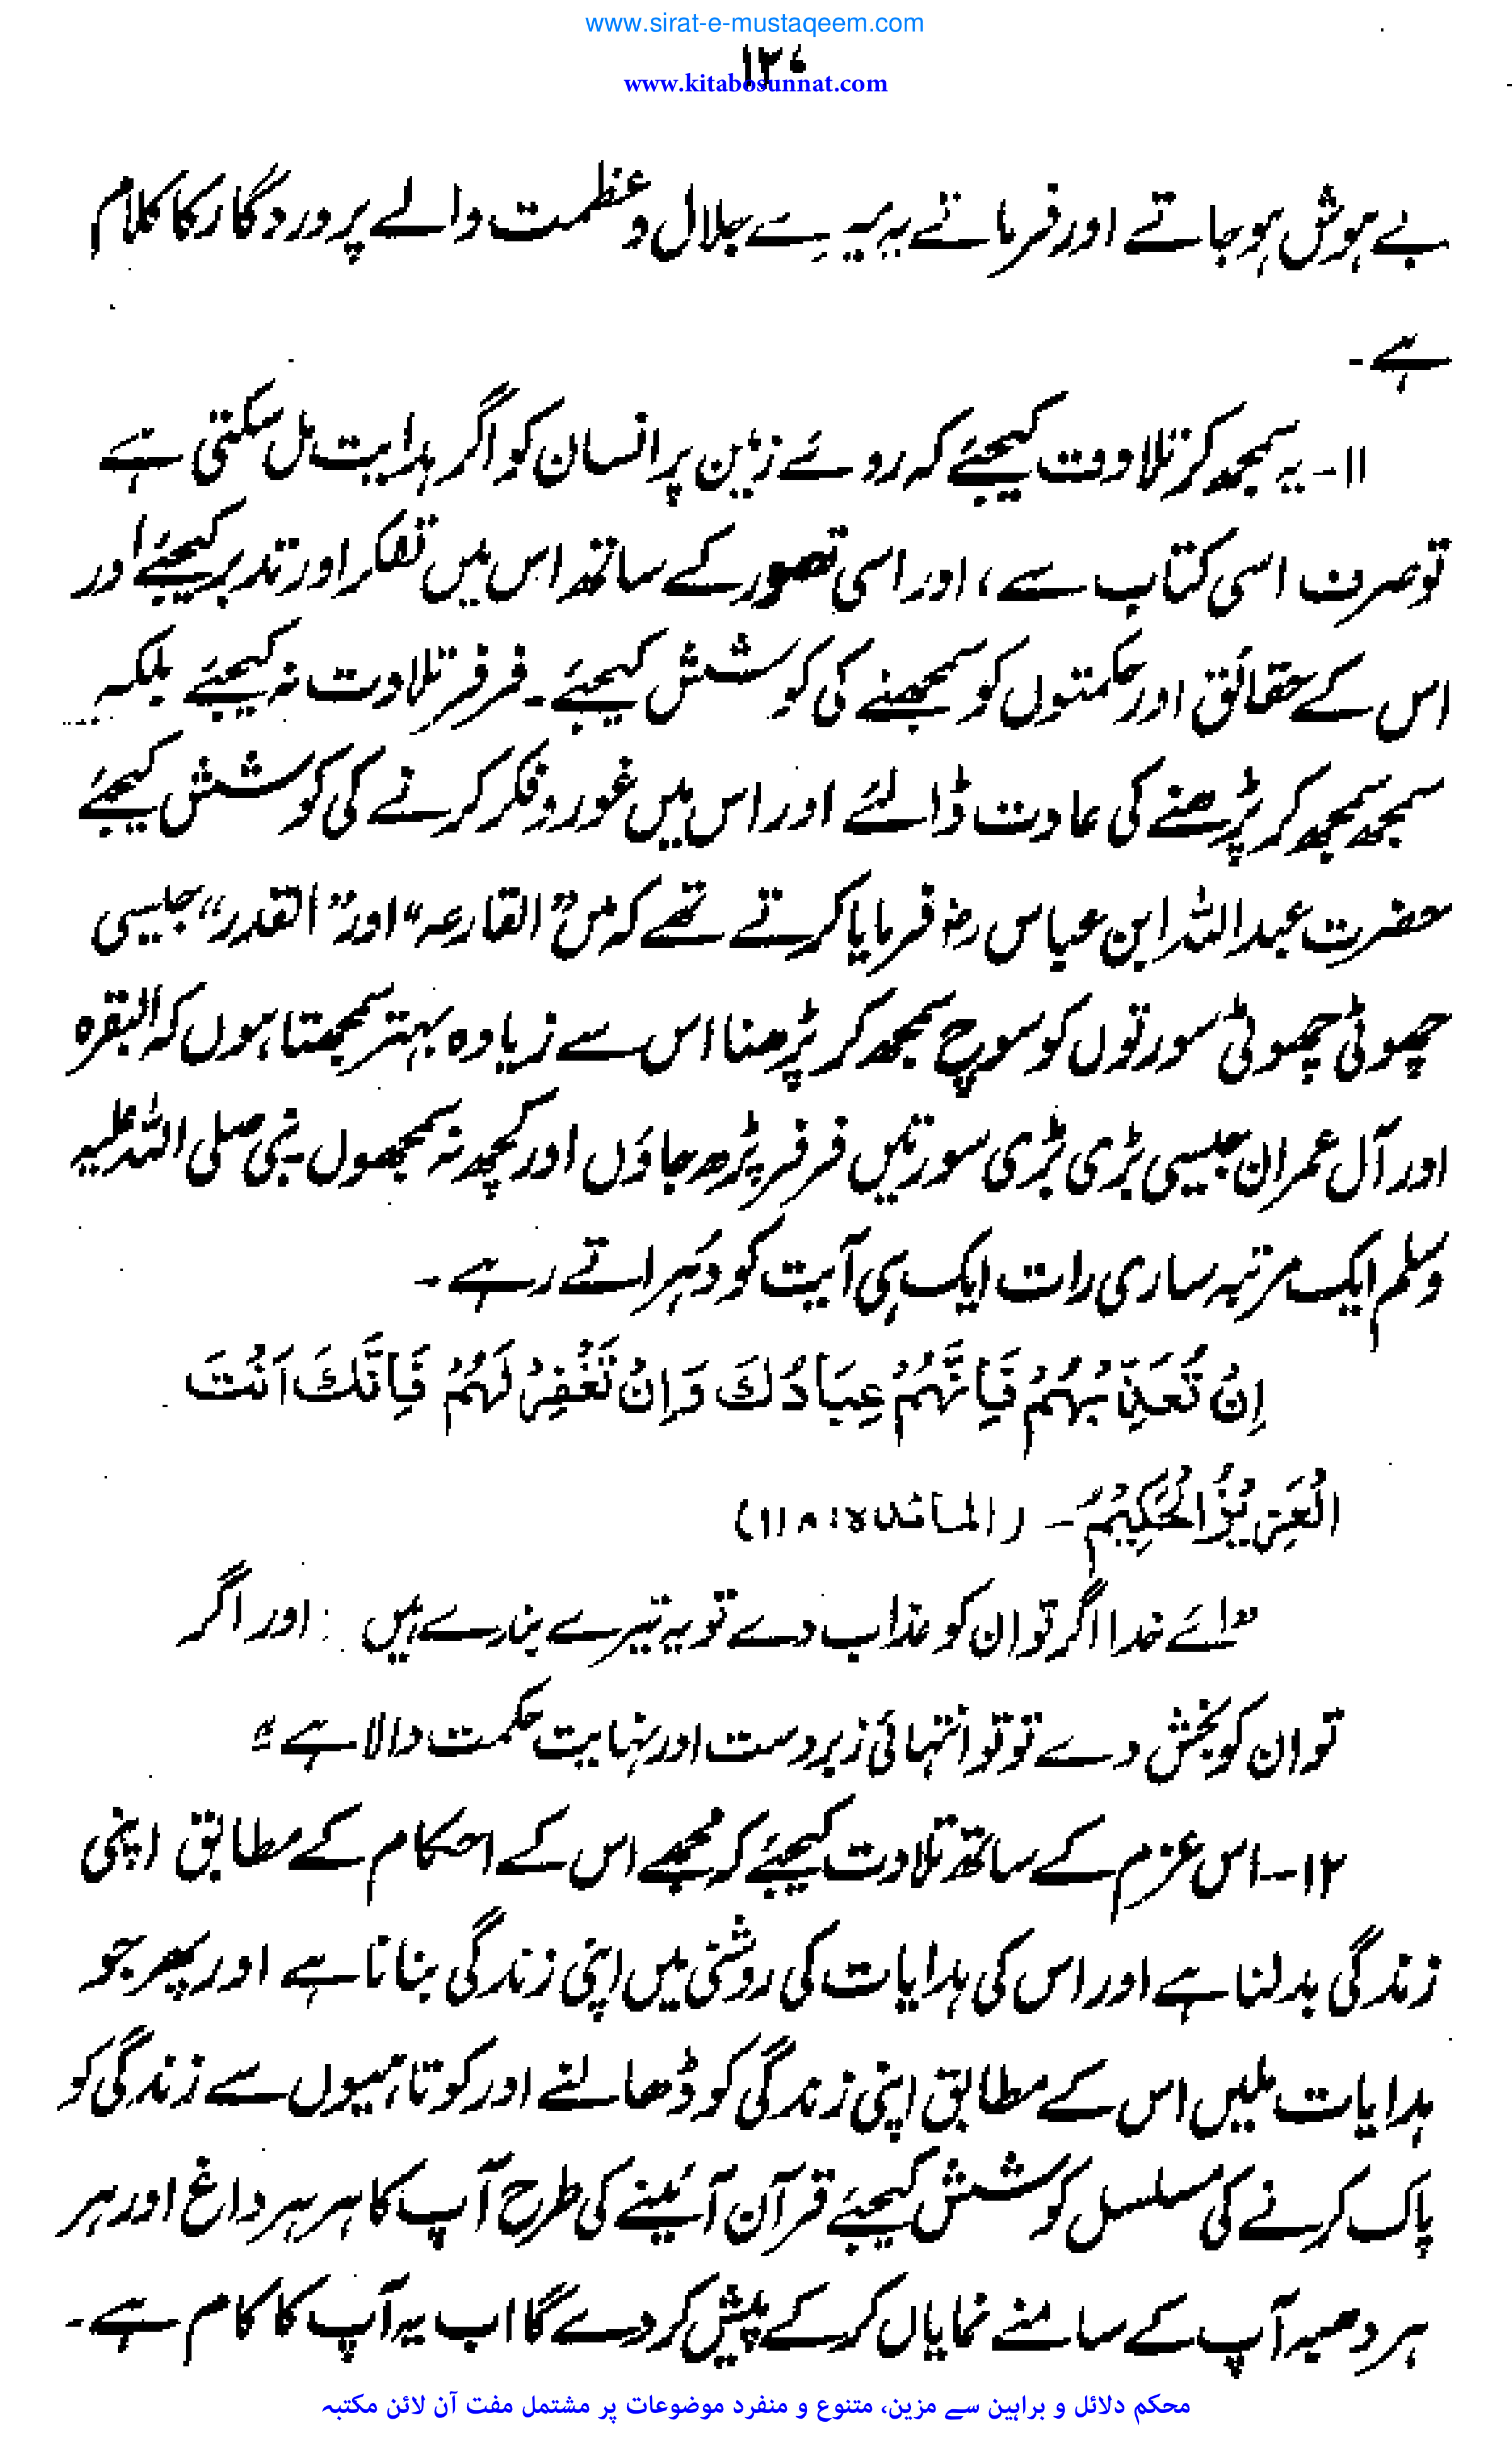 www.sirat-e-mustaqeem.com
www.kitabosunnat.com
بے ہوش ہوجاتے اور فرماتے یہ میرے جلال و عظمت والے پروردگار کا کلام
ہے۔
۱۱۔ یہ سمجھ کر تلاوت کیجئے کہ روئے زمین پر انسان کو اگر ہدایت مل سکتی ہے
تو صرف اسی کتاب سے، اور اسی تصور کے ساتھ اس میں تفکر اور تدبر کیجئے اور
اس کے حقائق اور حکمتوں کو سمجھنے کی کوشش کیجئے۔ فرفر تلاوت نہ کیجئے بلکہ
سمجھ سمجھ کر پڑھنے کی عادت ڈالئے اور اس میں غور و فکر کرنے کی کوشش کیجئے
حضرت عبداللہ ابن عباس رضؓ فرمایا کرتے تھے کہ میں "القارعہ" اور "القدر" جیسی
چھوٹی چھوٹی سورتوں کو سوچ سمجھ کر پڑھنا اس سے زیادہ بہتر سمجھتا ہوں کہ البقرہ
اور آل عمران جیسی بڑی بڑی سورتیں فرفر پڑھ جاؤں اور کچھ نہ سمجھوں۔ نبی صلی اللہ علیہ
وسلم ایک مرتبہ ساری رات ایک ہی آیت کو دُہراتے رہے۔
اِنْ تُعَذِّبْهُمْ فَاِنَّهُمْ عِبَادُكَ وَاِنْ تَغْفِرْ لَهُمْ فَاِنَّكَ اَنْتَ
الْعَزِيْزُ الْحَكِيْمُ۔ (المائدہ: ۱۱۸)
"اے خدا اگر تو ان کو عذاب دے تو یہ تیرے بندے ہیں: اور اگر
تو ان کو بخش دے تو تو انتہائی زبردست اور نہایت حکمت والا ہے"
۱۲۔ اس عزم کے ساتھ تلاوت کیجئے کہ مجھے اس کے احکام کے مطابق اپنی
زندگی بدلنا ہے اور اس کی ہدایات کی روشنی میں اپنی زندگی بنانا ہے اور پھر جو
ہدایات ملیں اس کے مطابق اپنی زندگی کو ڈھالنے اور کوتاہیوں سے زندگی کو
پاک کرنے کی مسلسل کوشش کیجئے قرآن آئینے کی طرح آپ کا ہر ہر داغ اور ہر
ہر دھبہ آپ کے سامنے نمایاں کرکے پیش کردے گا اب یہ آپ کا کام ہے۔
محکم دلائل و براہین سے مزین، متنوع و منفرد موضوعات پر مشتمل مفت آن لائن مکتبہ